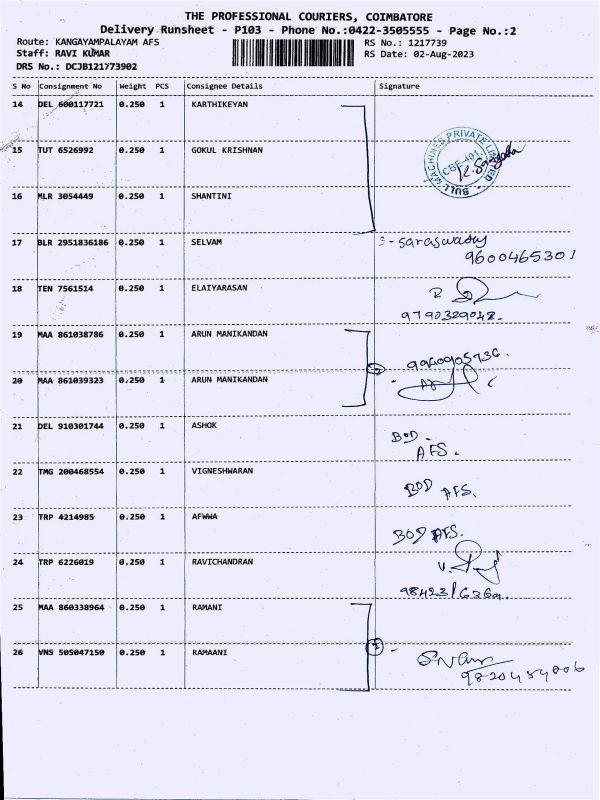 THE PROFESSIONAL COURIERS, COIMBATORE
Delivery Runsheet - P103 - Phone No.:0422-3505555 - Page No.:2
Route: KANGAYAMPALAYAM AFS RS No.: 1217739
Staff: RAVI KUMAR RS Date: 02-Aug-2023
DRS No.: DCJB121773902
S No Consignment No Weight PCS Consignee Details Signature
14 DEL 600117721 0.250 1 KARTHIKEYAN
BULL MACHINES PRIVATE LIMITED
CBE-401.
15 TUT 6526992 0.250 1 GOKUL KRISHNAN
16 MLR 3054449 0.250 1 SHANTINI
17 BLR 2951836186 0.250 1 SELVAM S-Saraswathy
9600465301
18 TEN 7561514 0.250 1 ELAIYARASAN
9790329048.
19 MAA 861038786 0.250 1 ARUN MANIKANDAN
9940905736.
20 MAA 861039323 0.250 1 ARUN MANIKANDAN
21 DEL 910301744 0.250 1 ASHOK BOD
AFS.
22 TMG 200468554 0.250 1 VIGNESHWARAN BOD AFS.
23 TRP 4214985 0.250 1 AFWWA BOD AFS.
24 TRP 6226019 0.250 1 RAVICHANDRAN
25 MAA 860338964 0.250 1 RAMANI
26 VNS 505047150 0.250 1 RAMAANI